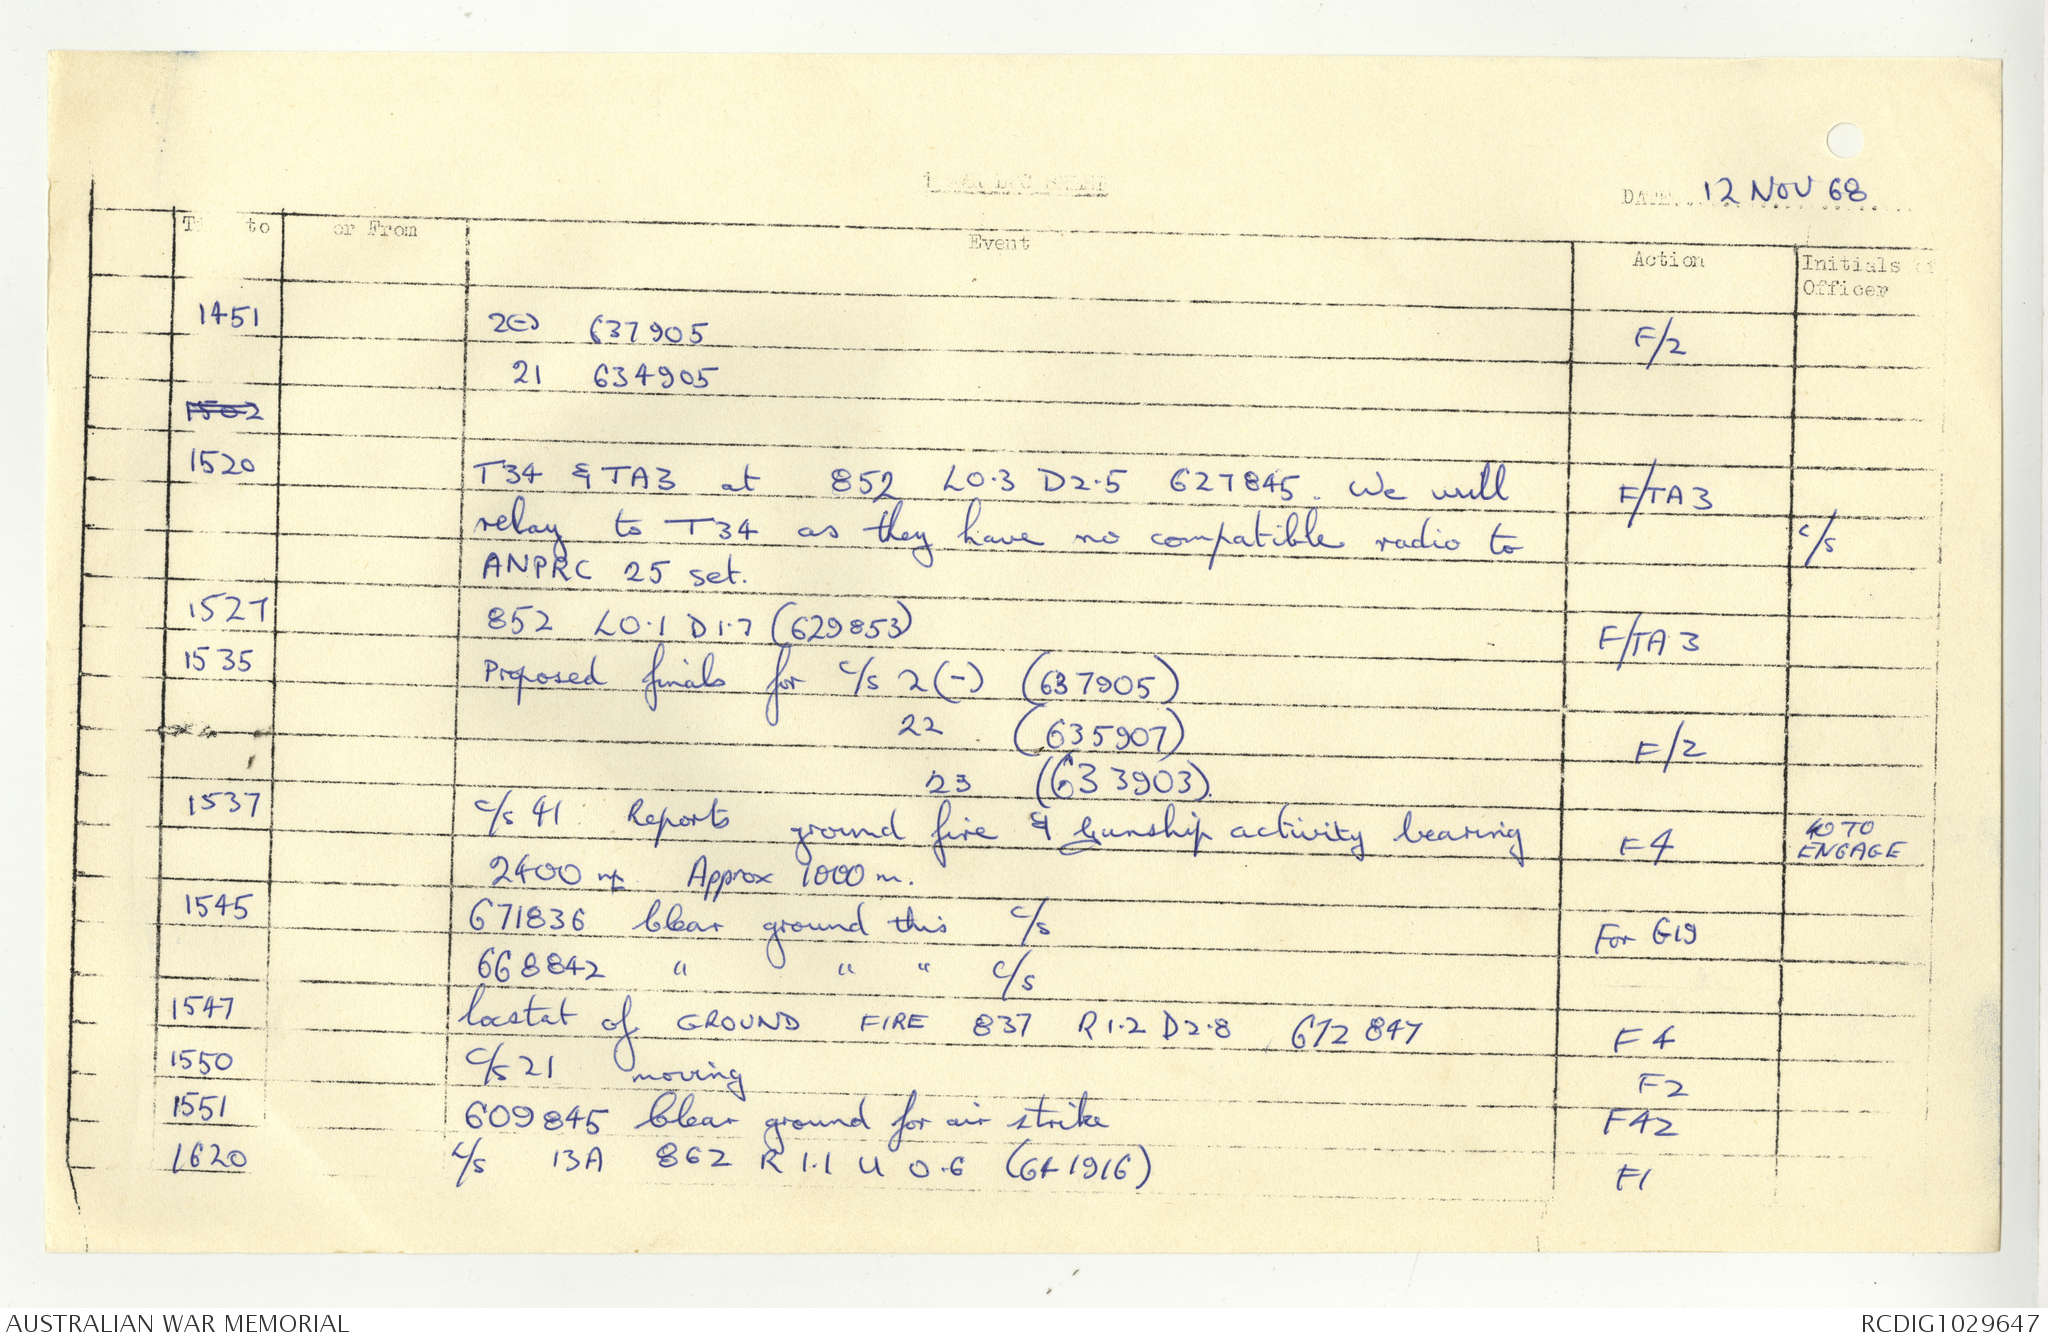 DATE 12 NOV 68
to or From Event Action Initials of
Officer
1451 2(-) 637905 F/2
21 634905
1502
1520 T34 & TA3 at 852 L0.3 D2.5 627845. We will F/TA3
relay to T34 as they have no compatible radio to c/s
ANPRC 25 set.
1527 852 L0.1 D1.7 (629853) F/TA3
1535 Proposed finals for c/s 2(-) (637905)
22 (635907) F/2
23 (633903)
1537 c/s 41 Reports ground fire & Gunship activity bearing F4 40 TO
ENGAGE
2400 Approx 1000 m.
1545 671836 Clear ground this c/s For G19
668842 " " " c/s
1547 Locstat of GROUND FIRE 837 R1.2 D2.8 672847 F4
1550 c/s 21 moving F2
1551 609845 Clear ground for air strike F42
1620 c/s 13A 862 R1.1 U 0.6 (641916) F1
AUSTRALIAN WAR MEMORIAL RCDIG1029647